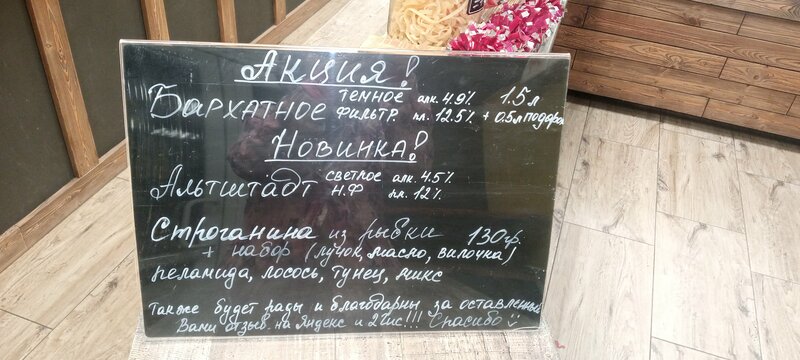 Акция!
Бархатное темное алк. 4.9% 1.5л
фильтр. пл. 12.5% + 0.5л подарок
Новинка!
Альтштадт светлое алк. 4.5%
Н.Ф пл. 12%
Строганина из рыбки 130р.
+ набор (лучок, масло, вилочка)
пеламида, лосось, тунец, микс
Также будет рады и благодарны за оставленный
Вами отзыв на Яндекс и 2гис!!! Спасибо